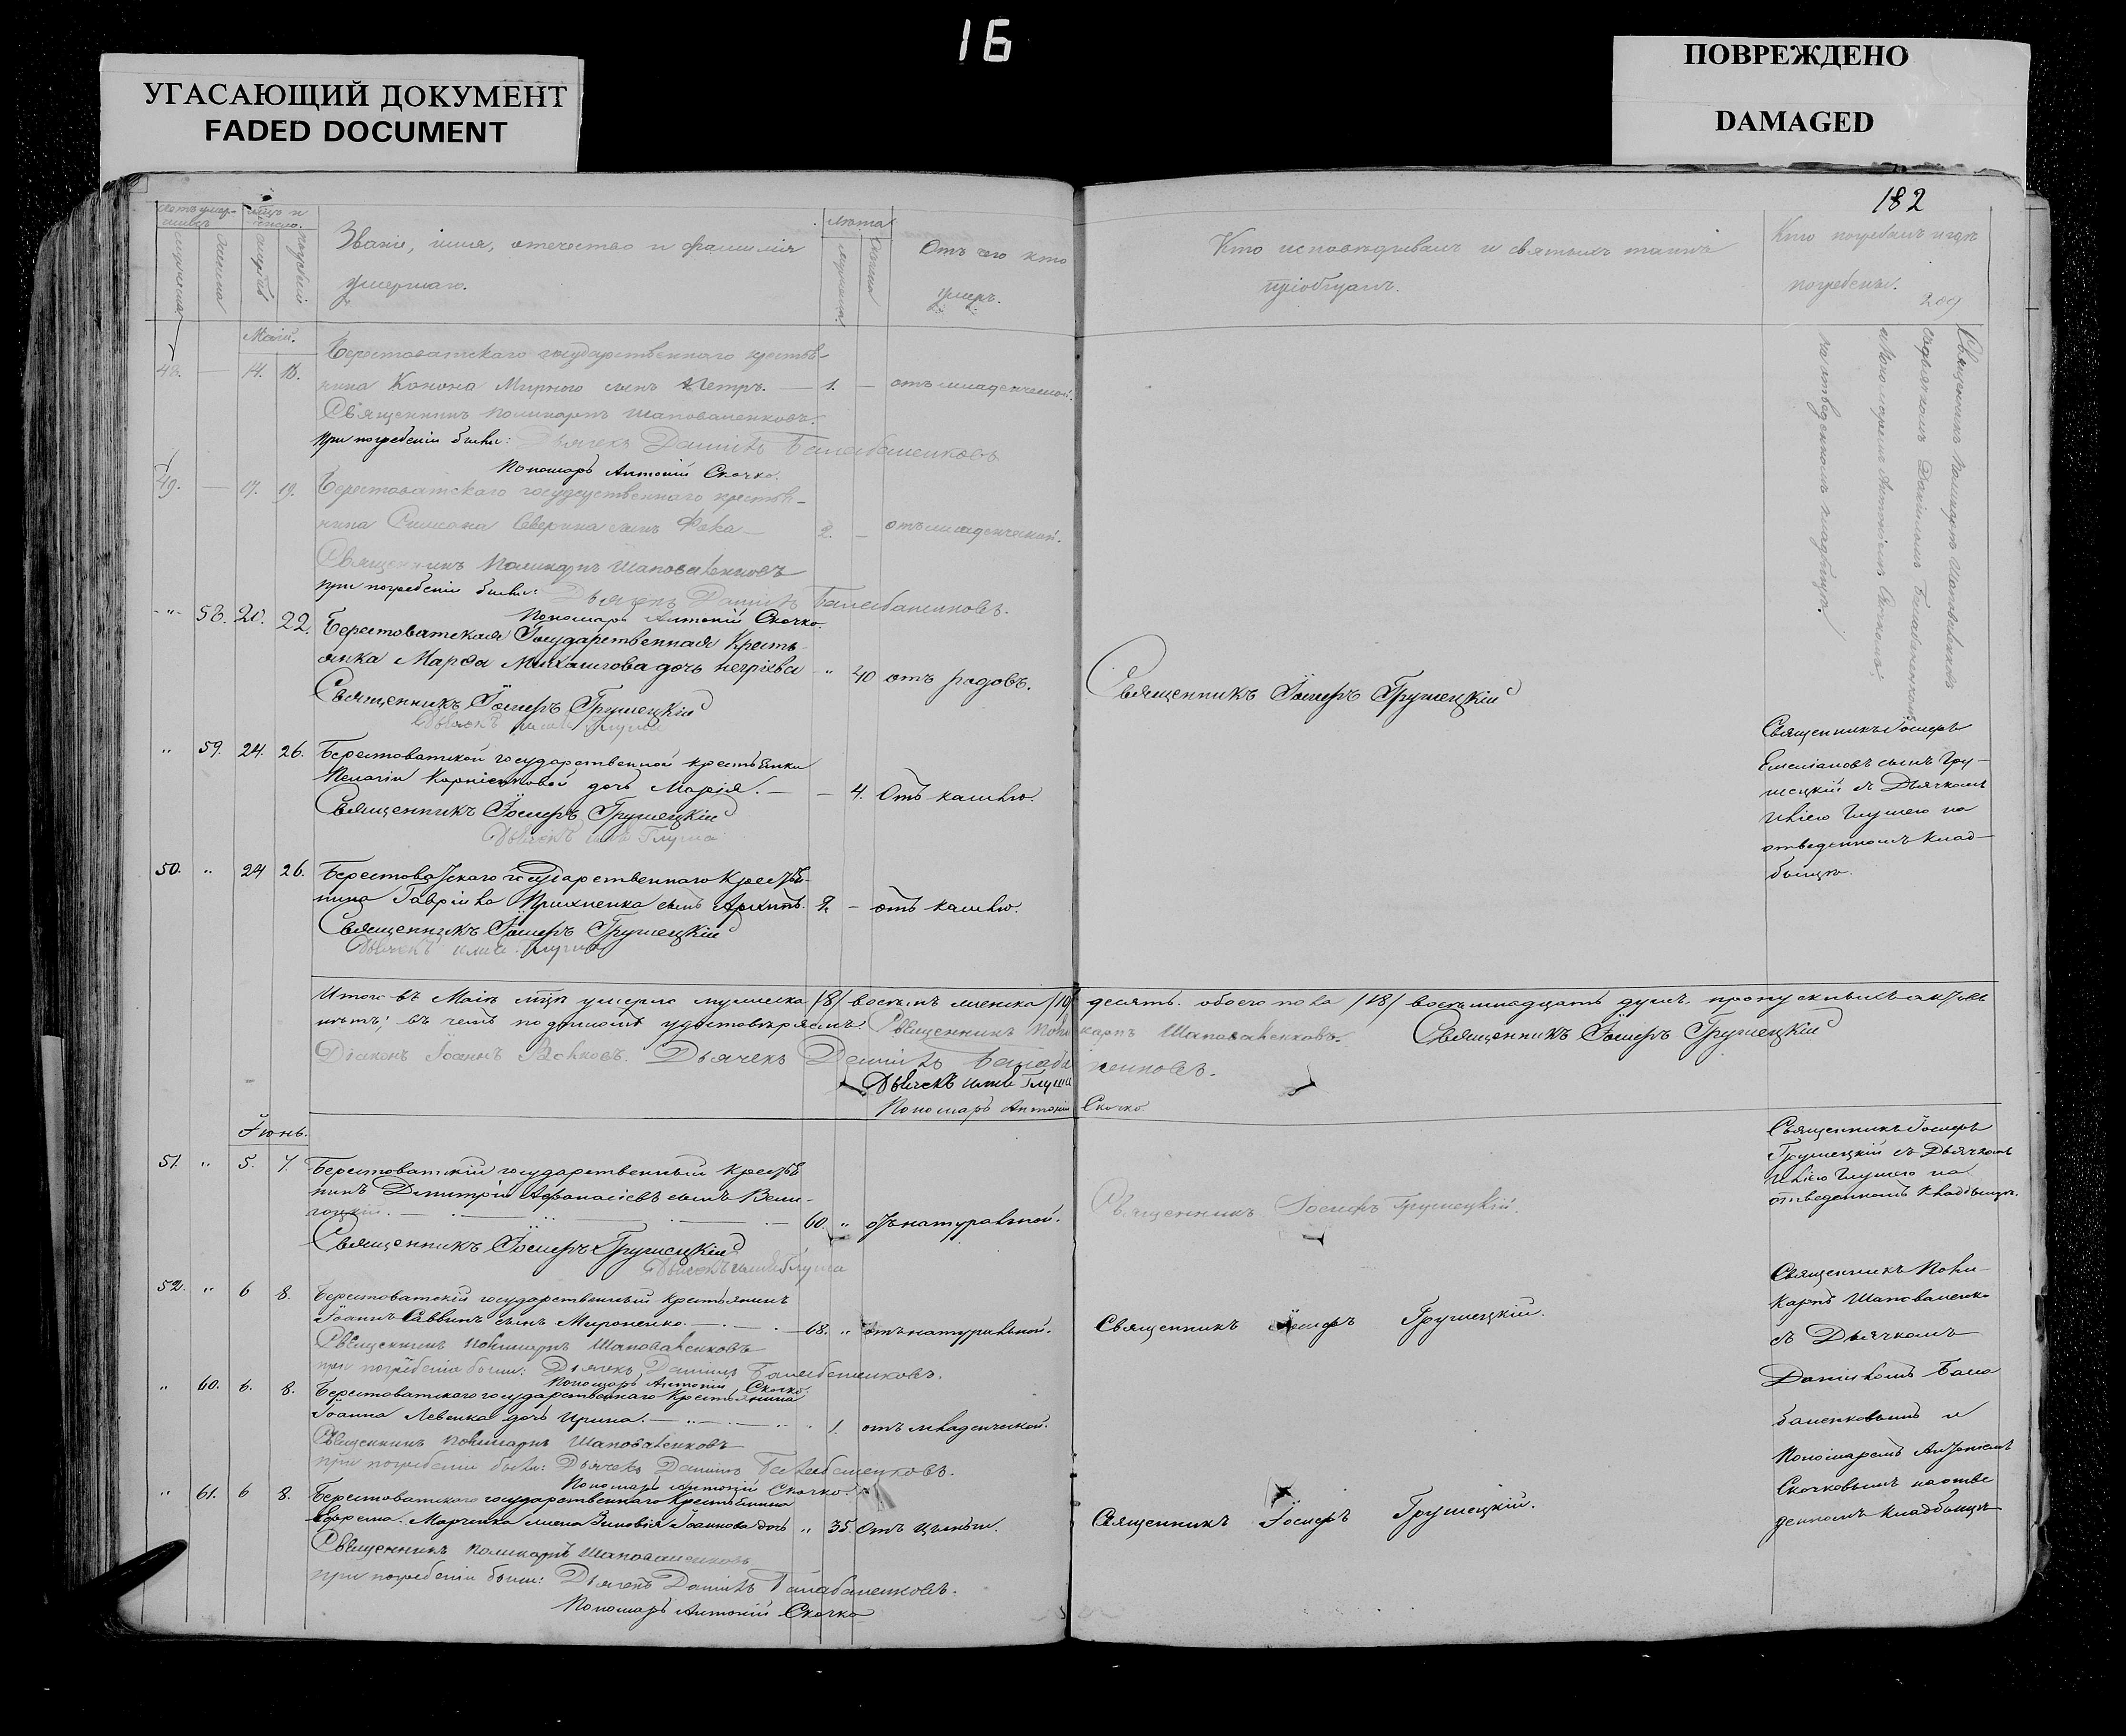 16
УГАСАЮЩИЙ ДОКУМЕНТ
FADED DOCUMENT
ПОВРЕЖДЕНО
DAMAGED
182
Званіе, имя, отечество и фамилія
умершаго.
лѣта
Отъ чего кто
умеръ.
Кто исповѣдывалъ и святыхъ таинъ
пріобщалъ.
Кто погребалъ и гдѣ
погребены.
209
Маій.
Берестоватскаго государственнаго крестья-
48. — 14. 18. нина Конона Мирного сынъ Петръ. — 1. — отъ младенческой.
Священникъ Поликарпъ Шаповаленковъ.
При погребеніи были: Дьячекъ Даніилъ Балабаненковъ
Пономарь Антоній Скочко.
49. — 17. 19. Берестоватскаго государственнаго крестья-
нина Симеона Северина сынъ Фока — 2. — отъ младенческой.
Священникъ Поликарпъ Шаповаленковъ
При погребеніи были: Дьячекъ Даніилъ Балабаненковъ.
Пономарь Антоній Скочко.
Священникъ Поликарпъ Шаповаленковъ
съ дьячкомъ Даніиломъ Балабаненковымъ
и Пономаремъ Антоніемъ Скочкомъ
на отведенномъ кладбищѣ.
" 58. 20. 22. Берестоватская Государственная Кресть-
янка Марѳа Михаилова дочь " 40 отъ родовъ.
Священникъ Іосифъ Грушецкій
Священникъ Іосифъ Грушецкій
Дьячекъ Илія Глуша
" 59. 24. 26. Берестоватской государственной крестьянки
Пелагіи Корніенковой дочь Марія. — — 4. Отъ кашлю.
Священникъ Іосифъ Грушецкій
Дьячекъ Илія Глуша
Священникъ Іосифъ
Емеліановъ сынъ Гру-
шецкій съ Дьячкомъ
Иліею Глушею на
отведенномъ клад-
бищѣ.
50. " 24 26. Берестоватскаго государственнаго Крестья-
нина Гавріила сынъ — отъ кашлю.
Священникъ Іосифъ Грушецкій
Дьячекъ Илія Глуша
Итого въ Маіѣ мцѣ умерло мужеска /8/ восемь женска /10/ десять. обоего пола /18/ восемнадцать душъ. пропускныхъ актовъ
нѣтъ; въ чемъ подписомъ удостовѣряемъ: Священникъ Поликарпъ Шаповаленковъ. Священникъ Іосифъ Грушецкій
Діаконъ Іоаннъ Волковъ. Дьячекъ Даніилъ Балабаненковъ.
Дьячекъ Илія Глуша
Пономарь Антоній Скочко
Іюнь.
51. " 5. 7. Берестоватскій государственный Крестья
нинъ Димитрій Афанасіевъ сынъ Вели-
гоцкій. 60. " отъ натуральной.
Священникъ Іосифъ Грушецкій.
Священникъ Іосифъ Грушецкій
Дьячекъ Илія Глуша
Священникъ Іосифъ
Грушецкій съ Дьячкомъ
Иліею Глушею на
отведенномъ кладбищѣ.
52. " 6 8. Берестоватскій государственный Крестьянинъ
Іоаннъ Саввинъ сынъ Мироненко. 68. " отъ натуральной.
Священникъ Іосифъ Грушецкій.
Священникъ Поликарпъ Шаповаленковъ
при погребеніи были: Дьячекъ Даніилъ Балабаненковъ.
Пономарь Антоній Скочко.
" 60. 6. 8. Берестоватскаго государственнаго Крестьянина
Іоанна Левенка дочь Ирина. " 1. отъ младенческой.
Священникъ Поликарпъ Шаповаленковъ
при погребеніи были: Дьячекъ Даніилъ Балабаненковъ.
Пономарь Антоній Скочко.
" 61. 6 8. Берестоватскаго государственнаго Крестьянина
Ефрема Марченка жена Зиновія Іоаннова дочь " 35. Отъ цынги.
Священникъ Іосифъ Грушецкій.
Священникъ Поликарпъ Шаповаленковъ
при погребеніи были: Дьячекъ Даніилъ Балабаненковъ.
Пономарь Антоній Скочко
Священникъ Поли-
карпъ Шаповаленко
съ Дьячкомъ
Даніиломъ Бала
баненковымъ и
Пономаремъ Антоніемъ
Скочковымъ на отве
денномъ кладбищѣ